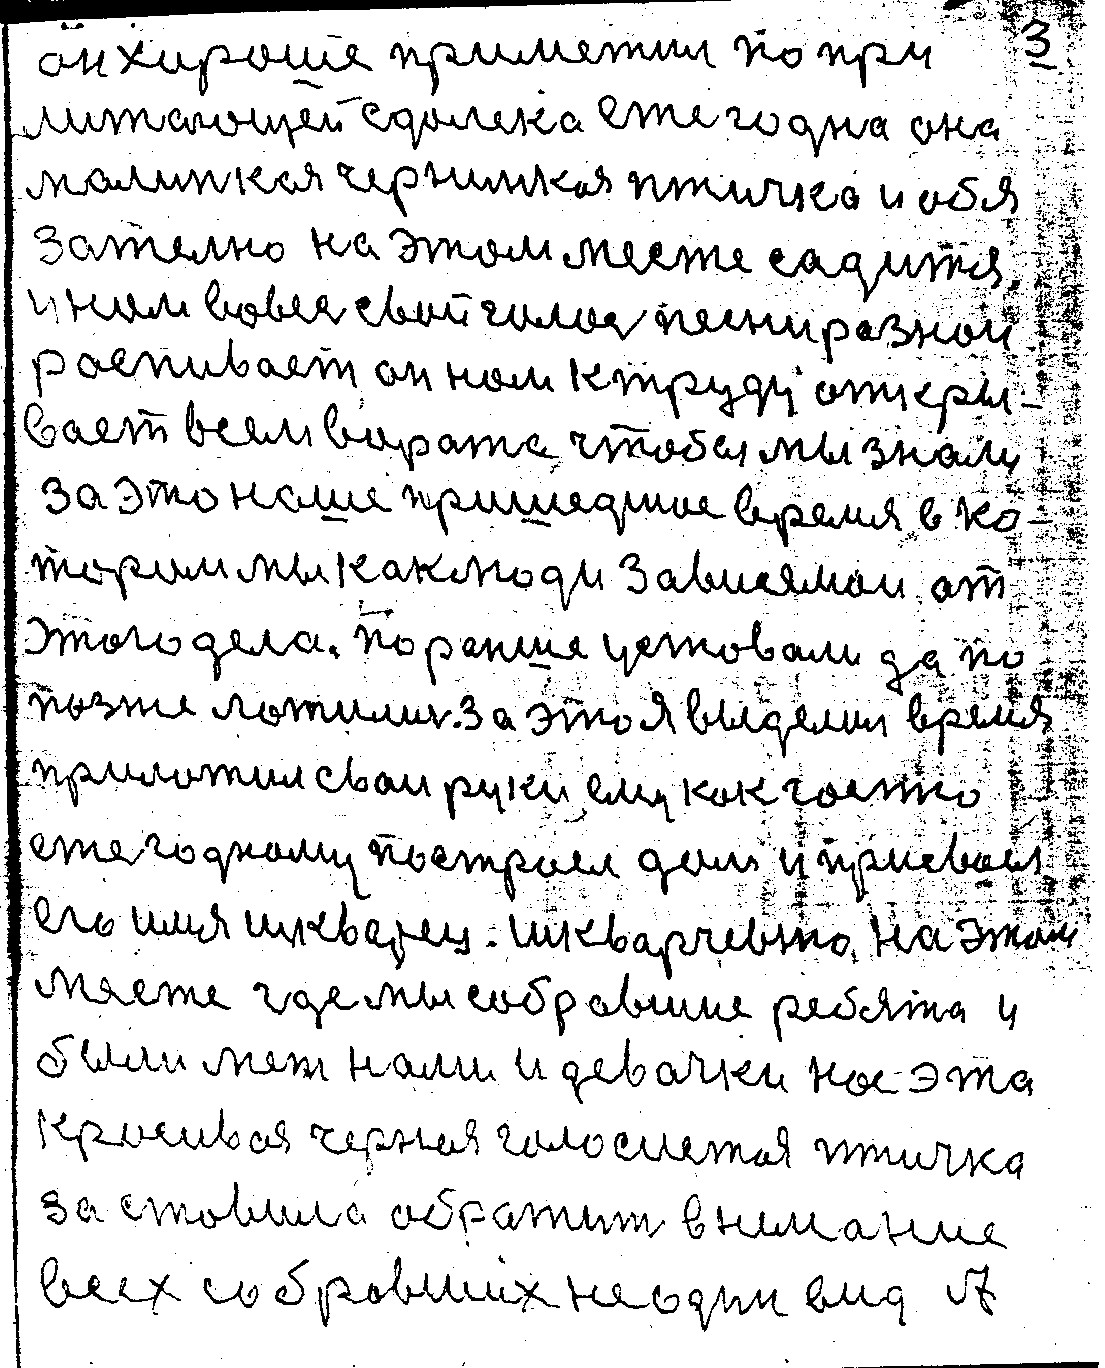 3
он хироше приметил по при
литающей сдолека ежегодна она
малинкоя чернинкоя птичка и обя
зателно на этом месте садится,
и нам вовся свой голос песни разнои
роспивает он нам к труду откры-
вает всем ворота, чтобы мы знали
за это наше пришедшое время в ко-
тором мы как люди зависямои от
этого дела. Поранше уставали да по
позже ложились. За это я выделил время
приложил сваи руки ему как гостю
ежегодному построел дом и присвоел
его имя шкварец. шкварчевто, на этом
мясте где мы собравшие ребята и
были меж нами и девачки нас эта
красивая черная голосистая птичка
заставила обратит внимание
всех собравших не один вид А